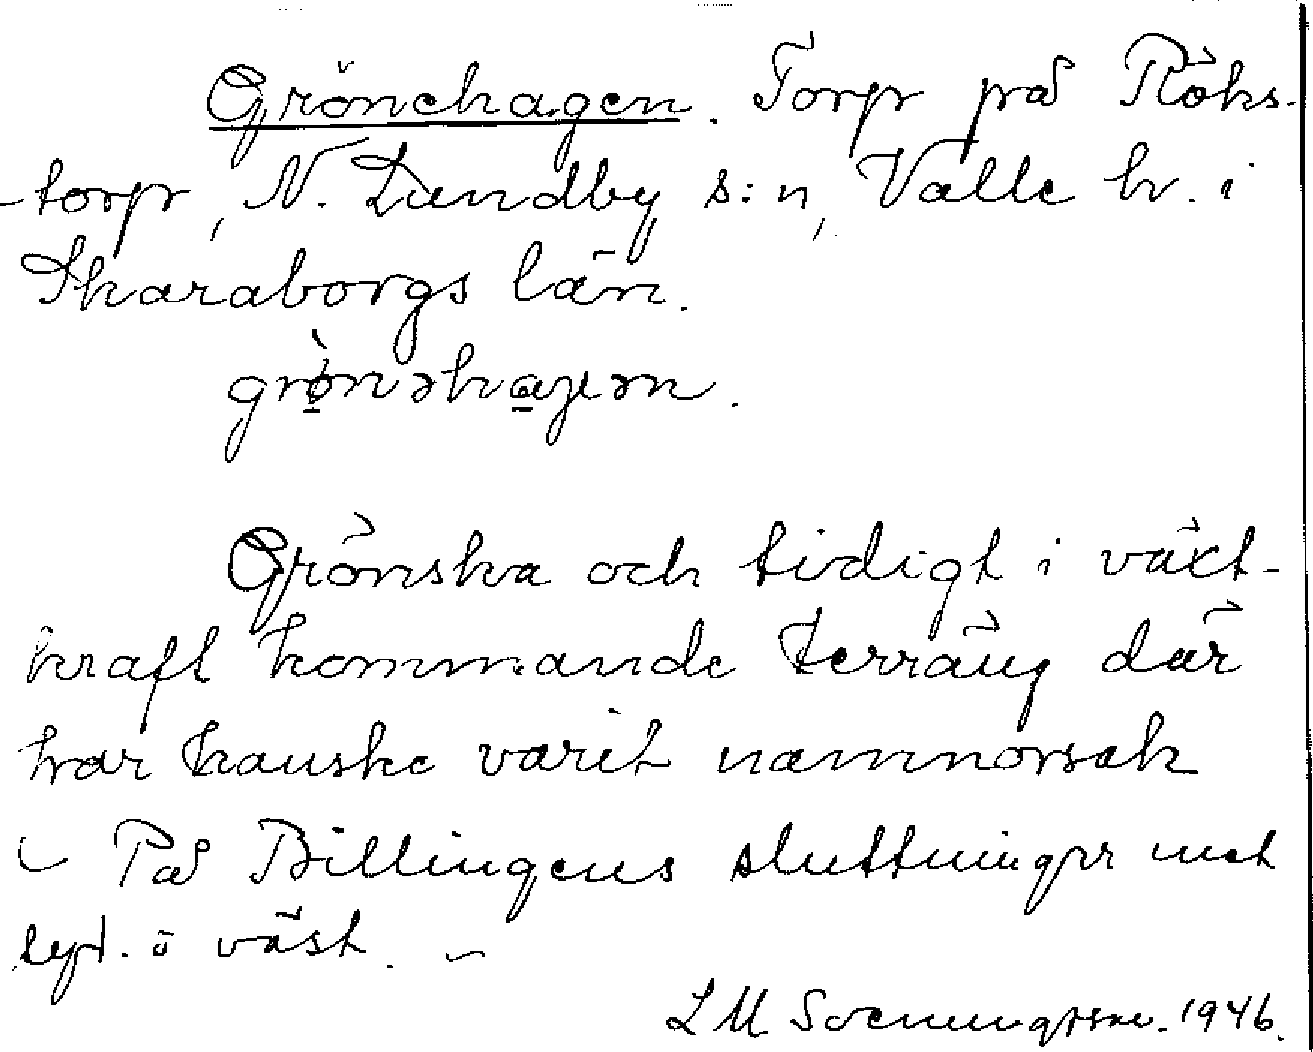 Grönehagen. Torp på Röks-
-torp, N. Lundby s:n, Valle hr. i
Skaraborgs län.
grønəhagən.
Grönska och tidigt i växt-
kraft kommande terräng där
har kanske varit namnorsak
– På Billingens sluttningar mot
syd. o väst. –
L M Svenungsson. 1946.